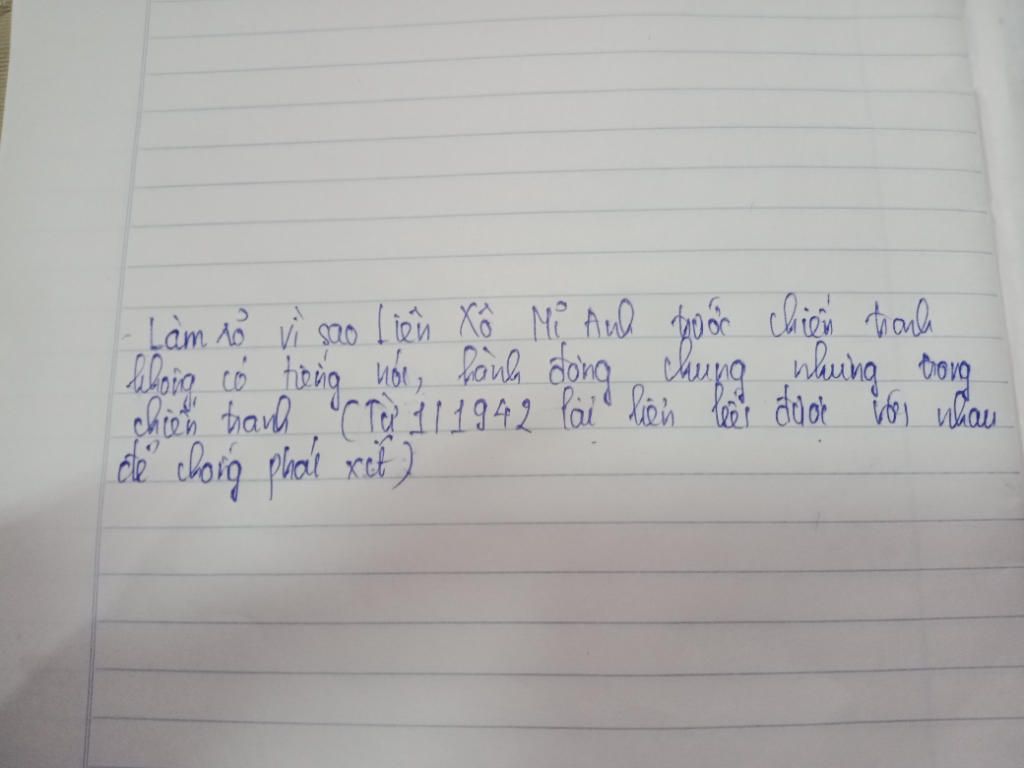 - Làm rỏ vì sao Liên Xô Mĩ Anh trước chiến tranh
không có tiếng nói, hành động chung nhưng trong
chiến tranh (Từ 1/1942 lại liên kết được với nhau
để chống phát xít)